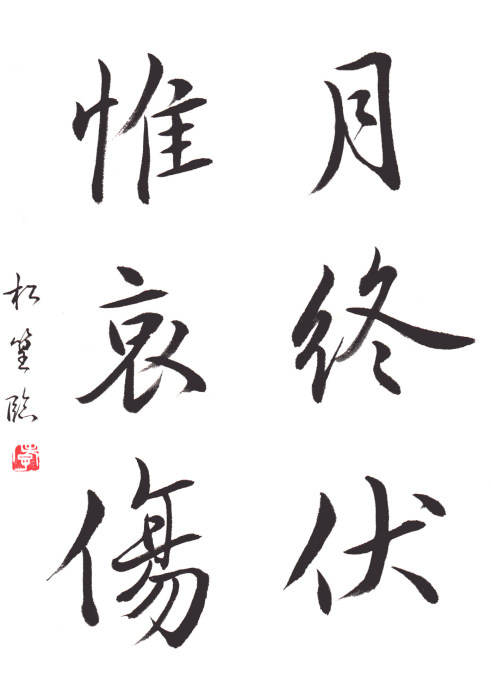 月終伏
惟哀傷
松篁臨